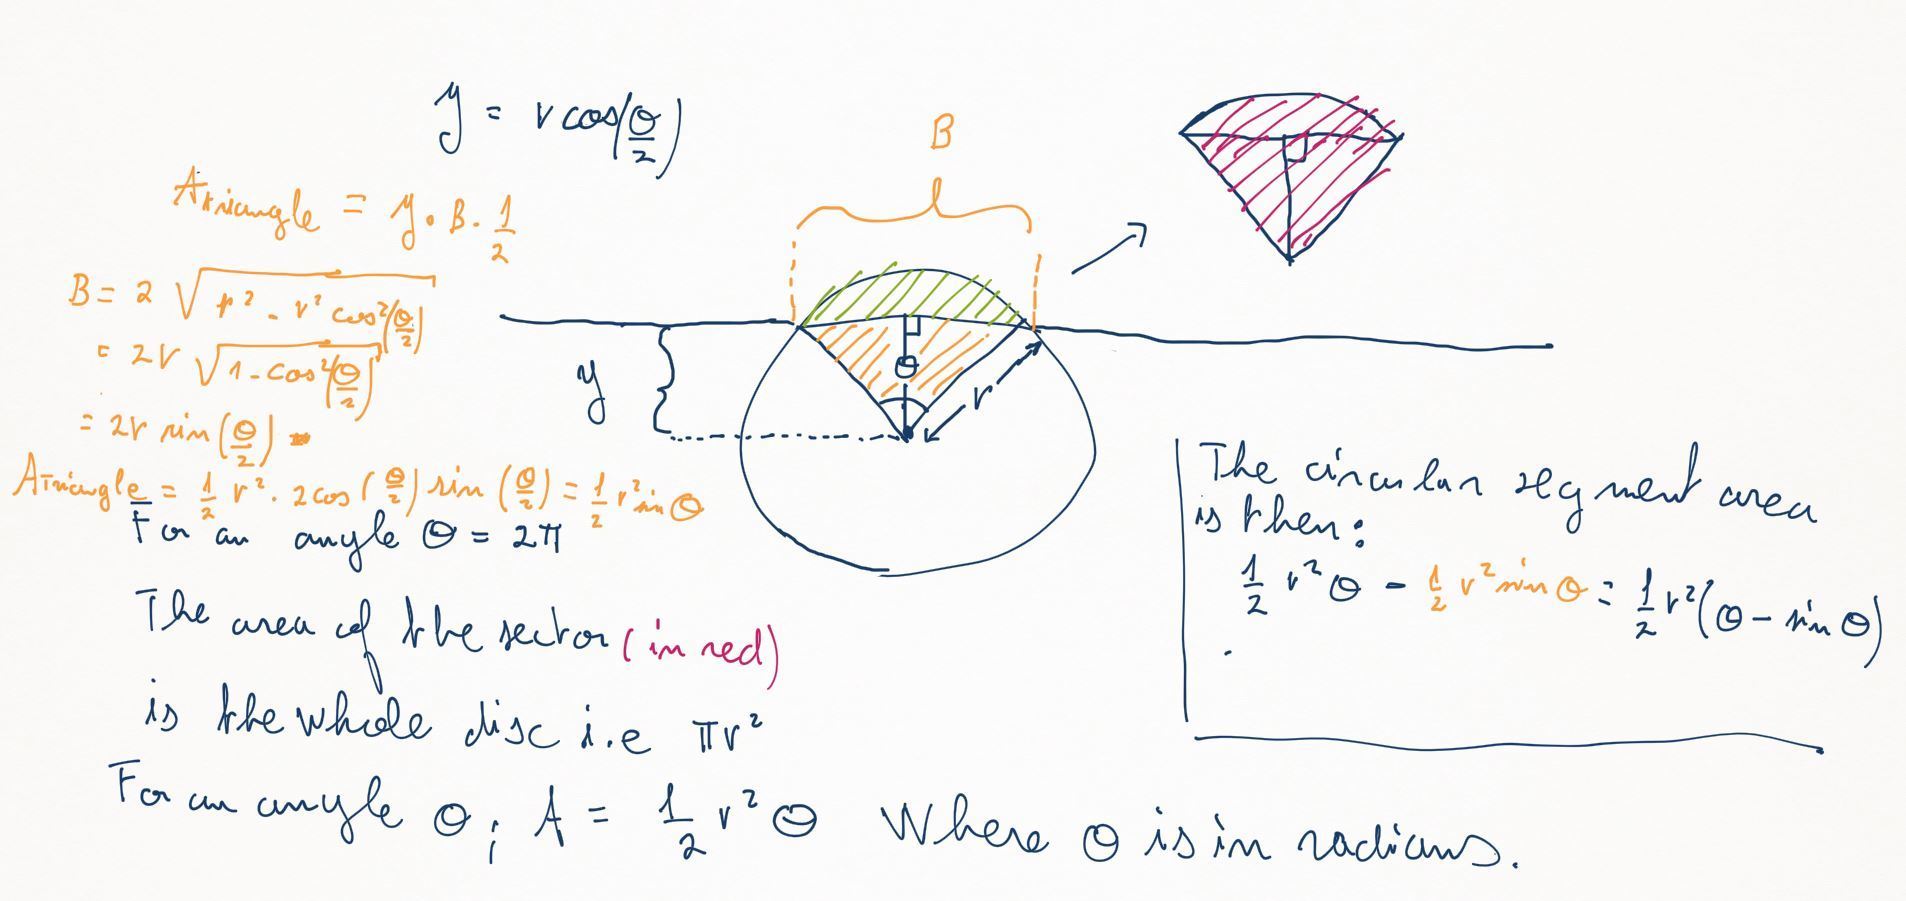 y = r cos(θ/2)
B
Atriangle = y · B · 1/2
B = 2 √(r² - r² cos²(θ/2))
= 2r √(1 - cos²(θ/2))
= 2r sin(θ/2)
Atriangle = 1/2 r² · 2cos(θ/2) sin(θ/2) = 1/2 r² sin θ
y
θ
r
For an angle θ = 2π
The area of the sector (in red)
is the whole disc i.e πr²
For an angle θ, A = 1/2 r² θ Where θ is in radians.
The circular segment area
is then:
1/2 r² θ - 1/2 r² sin θ = 1/2 r² (θ - sin θ)